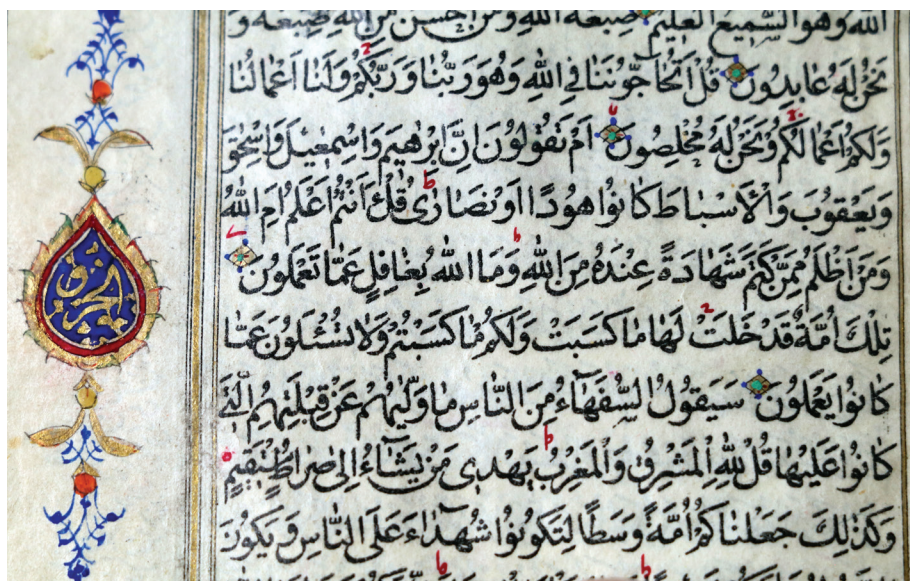 الله وهو السميع العليم صبغة الله ومن احسن من الله صبغة و
نحن له عابدون قل اتحاجوننا في الله وهو ربنا وربكم ولنا اعمالنا
ولكم اعمالكم ونحن له مخلصون ام تقولون ان ابرهيم واسمعيل واسحق
ويعقوب والاسباط كانوا هودا او نصارى قل ءانتم اعلم ام الله
ومن اظلم ممن كتم شهادة عنده من الله وما الله بغافل عما تعملون
تلك امة قد خلت لها ما كسبت ولكم ما كسبتم ولا تسئلون عما
كانوا يعملون سيقول السفهاء من الناس ما وليهم عن قبلتهم التي
كانوا عليها قل لله المشرق والمغرب يهدي من يشاء الى صراط مستقيم
وكذلك جعلناكم امة وسطا لتكونوا شهداء على الناس ويكون